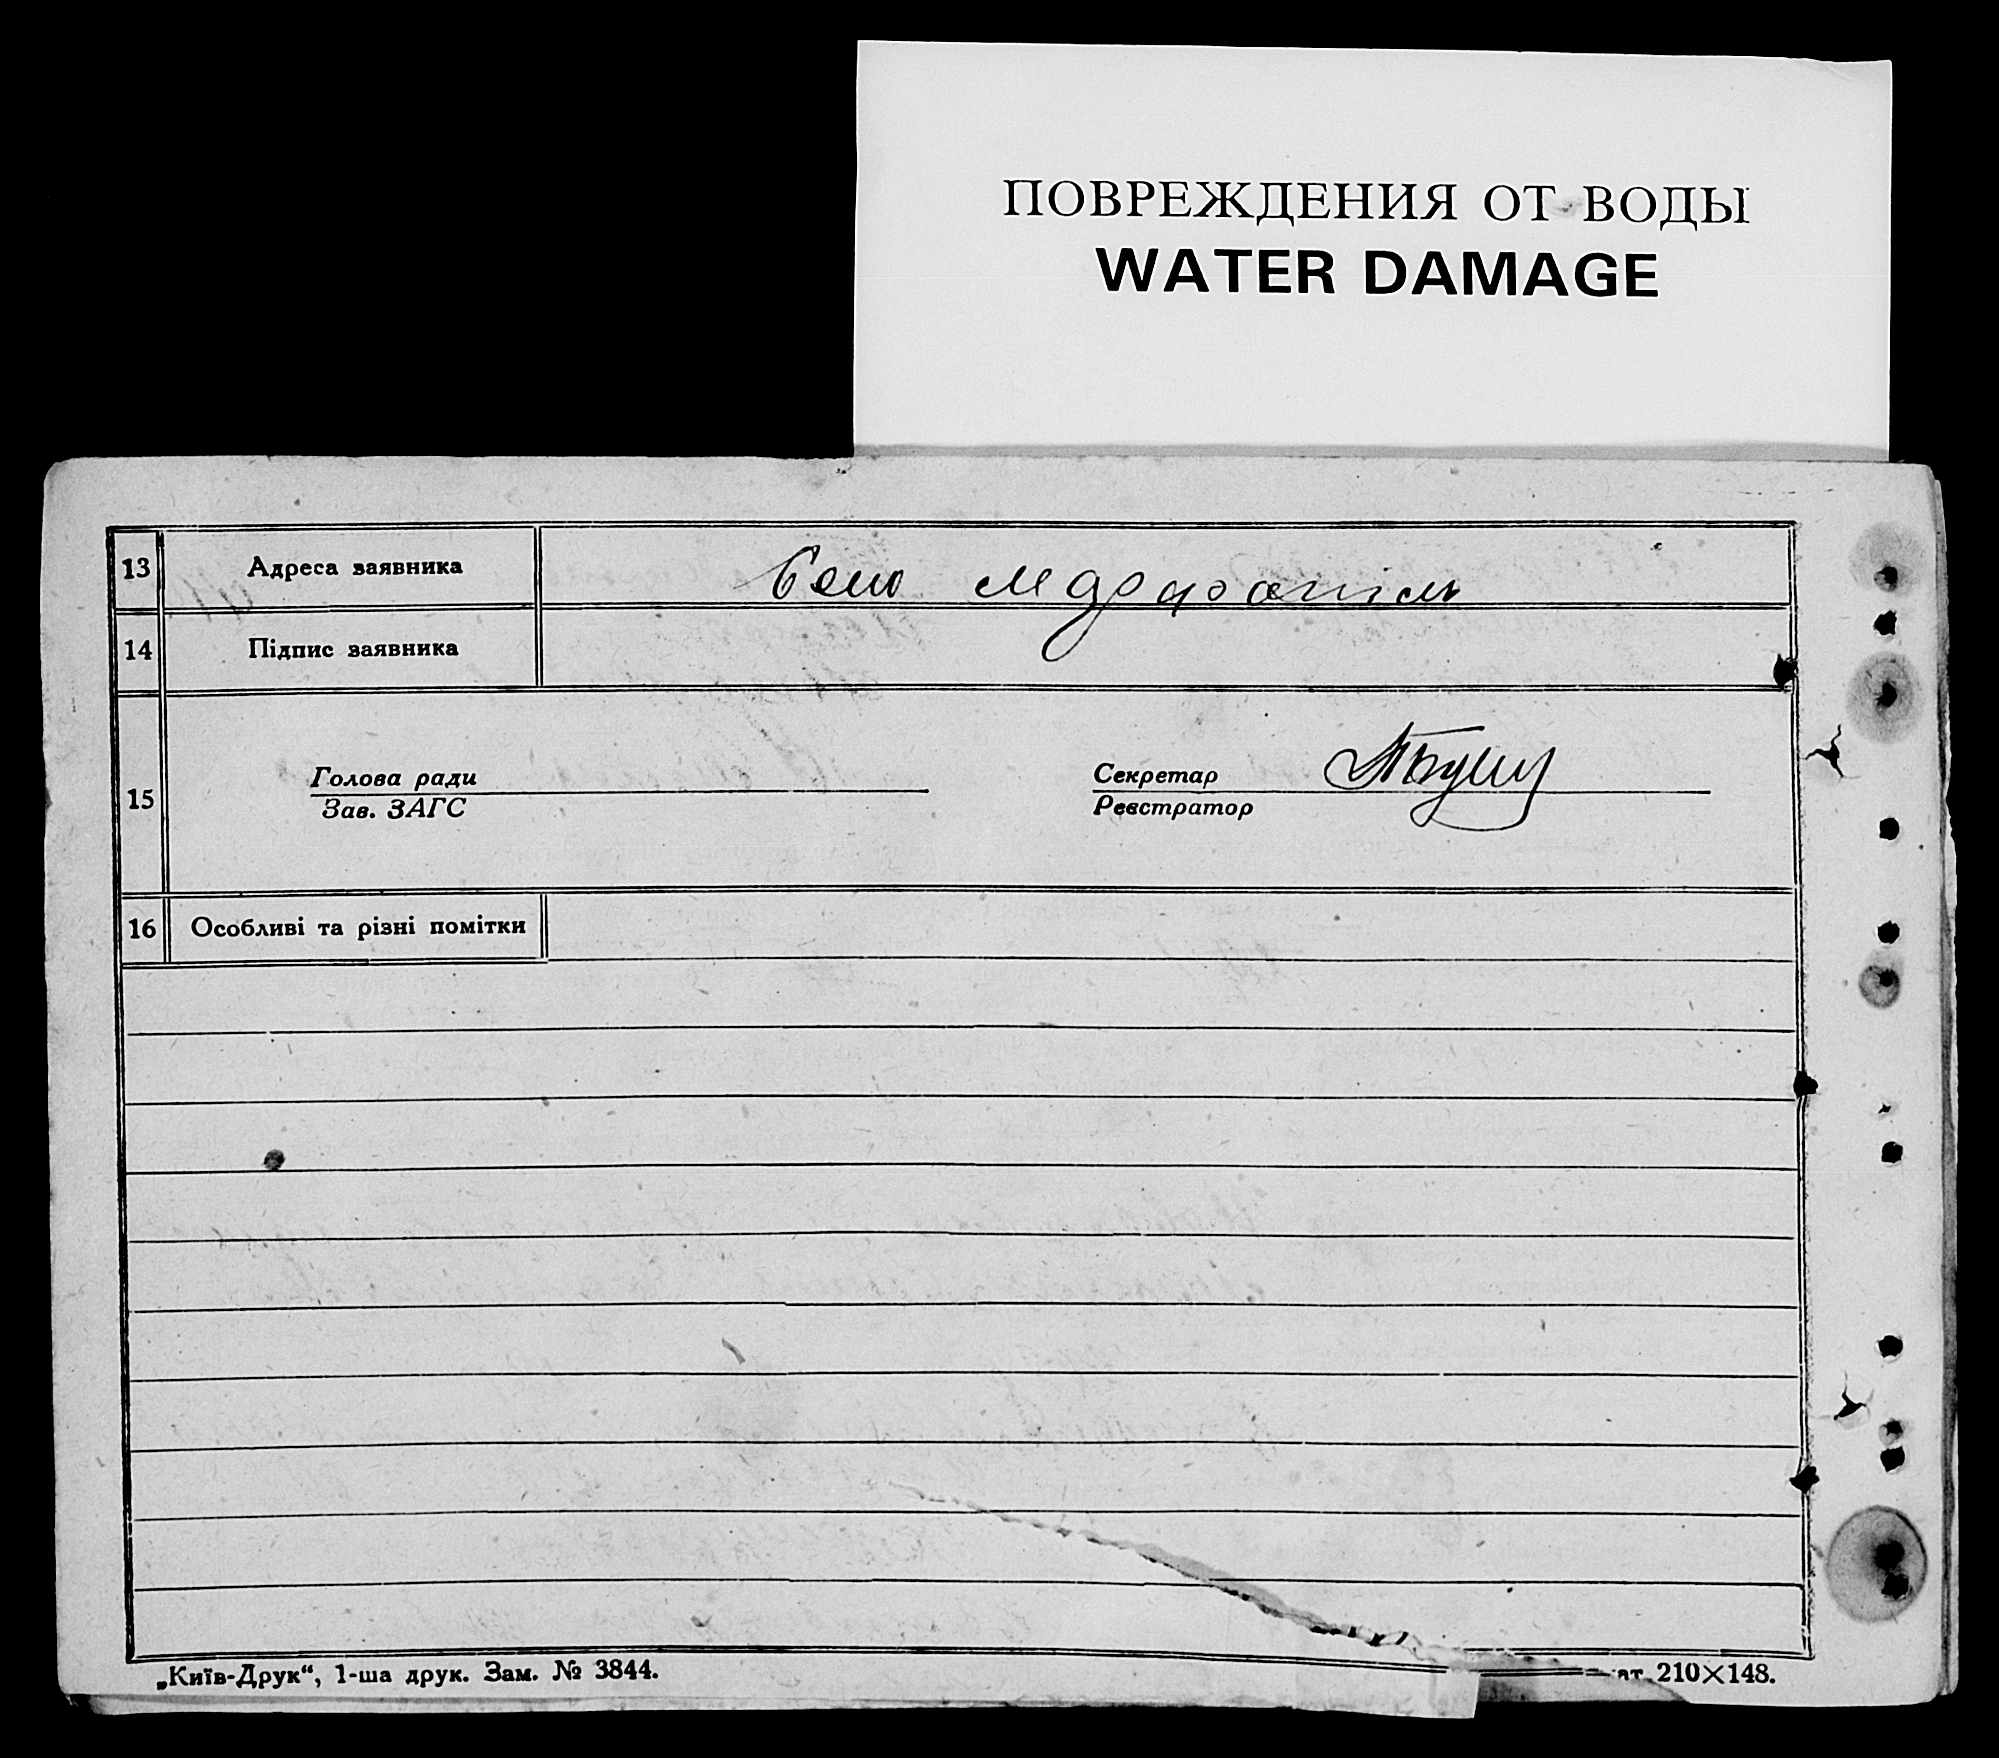 ПОВРЕЖДЕНИЯ ОТ ВОДЫ
WATER DAMAGE
13 Адреса заявника Село
14 Підпис заявника
15 Голова ради Секретар
Зав. ЗАГС Реєстратор
16 Особливі та різні помітки
„Київ-Друк“, 1-ша друк. Зам. № 3844. ат 210×148.